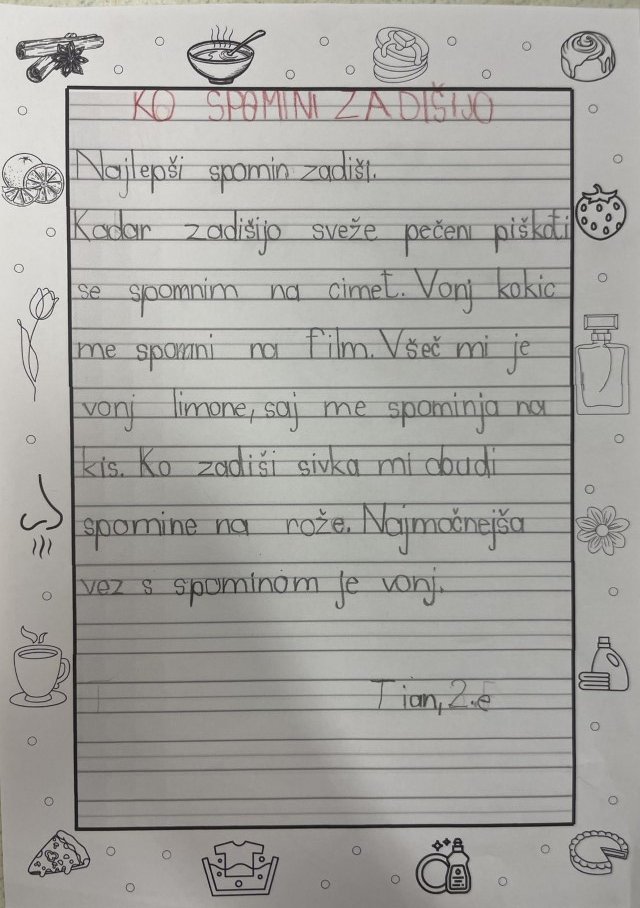 KO SPOMINI ZADIŠIJO
Najlepši spomin zadiši.
Kadar zadišijo sveže pečeni piškoti
se spomnim na cimet. Vonj kokic
me spomni na film. Všeč mi je
vonj limone, saj me spominja na
kis. Ko zadiši sivka mi obudi
spomine na rože. Najmočnejša
vez s spominom je vonj.
Tian, 2.e